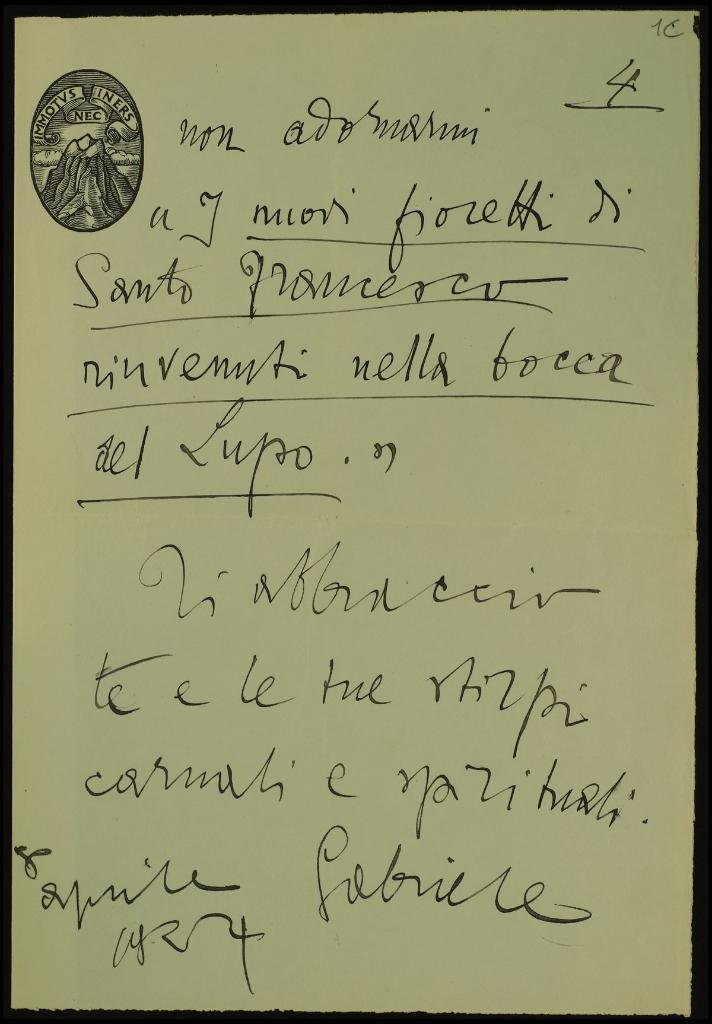 1C
4
IMMOTVS NEC INERS
non adornarmi
" I nuovi fioretti di
Santo Francesco
rinvenuti nella bocca
del Lupo. "
Ti abbraccio
te e le tue stirpi
carnali e spirituali.
8 aprile Gabriele
1924